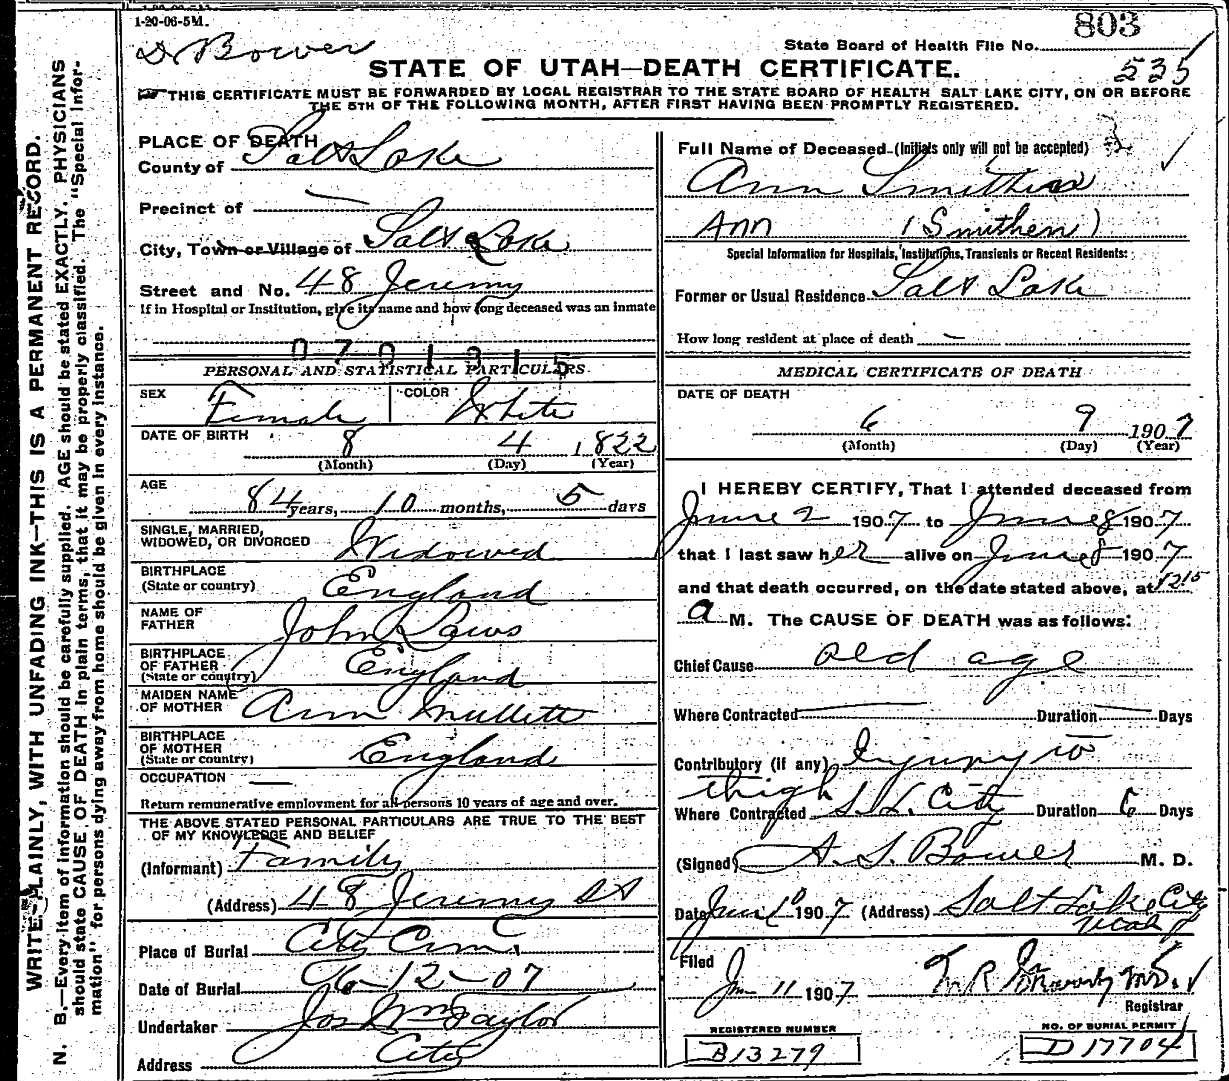 1-20-06-5M.
Dr Bower
803
State Board of Health File No.
535
STATE OF UTAH—DEATH CERTIFICATE.
THIS CERTIFICATE MUST BE FORWARDED BY LOCAL REGISTRAR TO THE STATE BOARD OF HEALTH SALT LAKE CITY, ON OR BEFORE
THE 5TH OF THE FOLLOWING MONTH, AFTER FIRST HAVING BEEN PROMPTLY REGISTERED.
WRITE PLAINLY, WITH UNFADING INK—THIS IS A PERMANENT RECORD.
N. B.—Every item of information should be carefully supplied. AGE should be stated EXACTLY. PHYSICIANS
should state CAUSE OF DEATH in plain terms, that it may be properly classified. The "Special Infor-
mation" for persons dying away from home should be given in every instance.
PLACE OF DEATH
County of Salt Lake
Precinct of —
City, Town or Village of Salt Lake
Street and No. 48 Jeremy
If in Hospital or Institution, give its name and how long deceased was an inmate
0701315
PERSONAL AND STATISTICAL PARTICULARS.
SEX Female COLOR White
DATE OF BIRTH 8 4 1822
(Month) (Day) (Year)
AGE 84 years, 10 months, 5 days
SINGLE, MARRIED,
WIDOWED, OR DIVORCED Widowed
BIRTHPLACE
(State or country) England
NAME OF
FATHER John Laws
BIRTHPLACE
OF FATHER
(State or country) England
MAIDEN NAME
OF MOTHER Ann Mullett
BIRTHPLACE
OF MOTHER
(State or country) England
OCCUPATION —
Return remunerative employment for all persons 10 years of age and over.
THE ABOVE STATED PERSONAL PARTICULARS ARE TRUE TO THE BEST
OF MY KNOWLEDGE AND BELIEF
(Informant) Family
(Address) 48 Jeremy St
Place of Burial City Cem
Date of Burial 6-12-07
Undertaker Jos Wm Taylor
Address City
Full Name of Deceased—(Initials only will not be accepted)
Ann Smithen
Ann (Smithen)
Special Information for Hospitals, Institutions, Transients or Recent Residents:
Former or Usual Residence Salt Lake
How long resident at place of death —
MEDICAL CERTIFICATE OF DEATH
DATE OF DEATH
6 9 1907
(Month) (Day) (Year)
I HEREBY CERTIFY, That I attended deceased from
June 2 1907 to June 8 1907
that I last saw her alive on June 8 1907
and that death occurred, on the date stated above, at 1215
a M. The CAUSE OF DEATH was as follows:
Chief Cause old age
Where Contracted Duration Days
Contributory (if any) Injury to
thigh
Where Contracted S. L. City Duration 6 Days
(Signed) A. S. Bower M. D.
Date Jun 10 1907 (Address) Salt Lake City
Utah
Filed
Jun 11 1907
Registrar
REGISTERED NUMBER
B13279
NO. OF BURIAL PERMIT
D17704